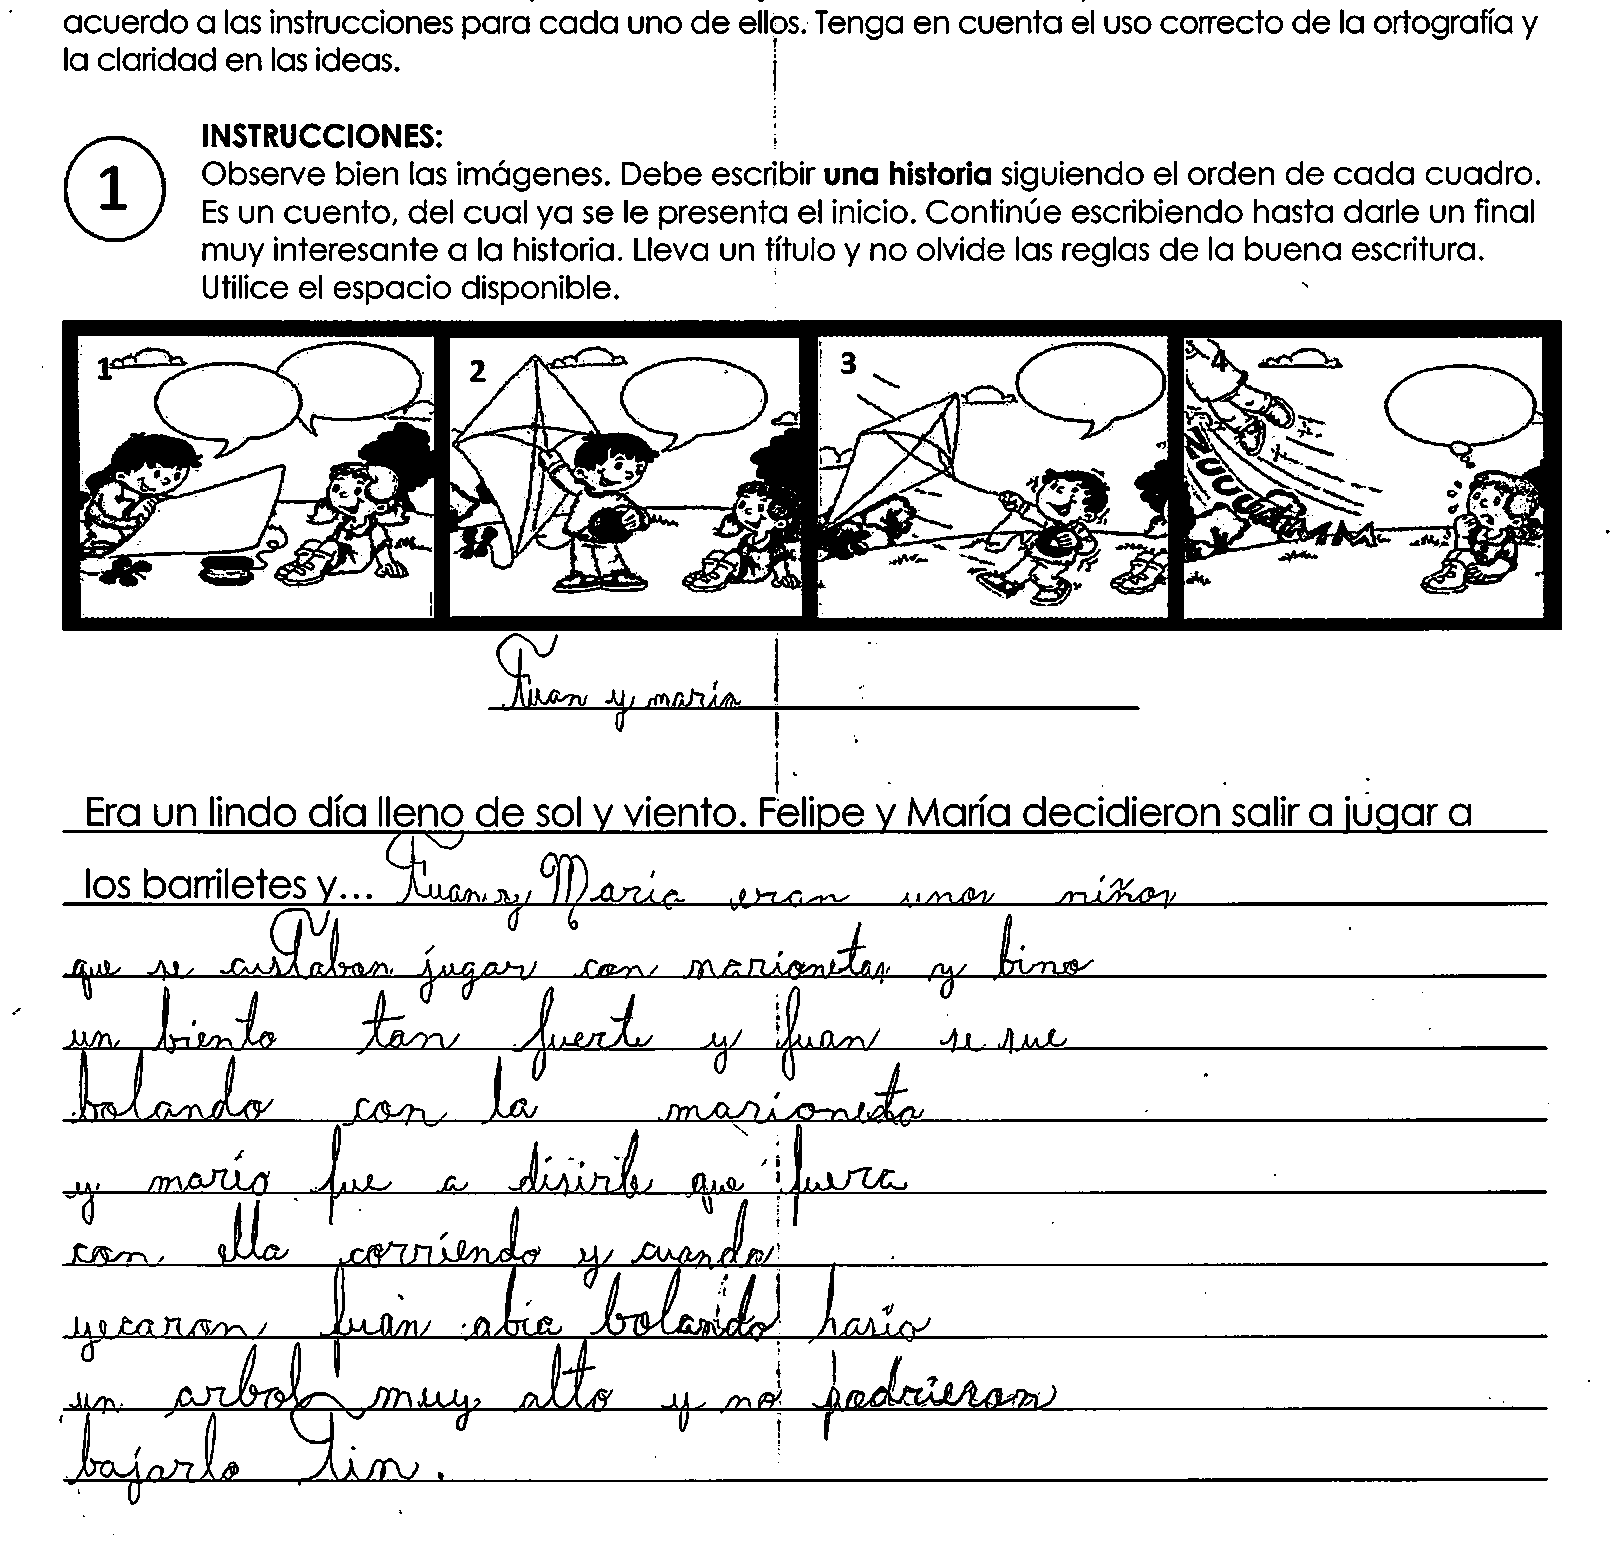 acuerdo a las instrucciones para cada uno de ellos. Tenga en cuenta el uso correcto de la ortografía y
la claridad en las ideas.
1
INSTRUCCIONES:
Observe bien las imágenes. Debe escribir una historia siguiendo el orden de cada cuadro.
Es un cuento, del cual ya se le presenta el inicio. Continúe escribiendo hasta darle un final
muy interesante a la historia. Lleva un título y no olvide las reglas de la buena escritura.
Utilice el espacio disponible.
1 2 3 4
ZUUUMMM
Fuan y maria
Era un lindo día lleno de sol y viento. Felipe y María decidieron salir a jugar a
los barriletes y... Fuan y Maria eran unos niños
que se custaban jugar con marionetas y bino
un biento tan fuerte y fuan se sue
bolando con la marioneta
y mario fue a disirle que fuera
con ella corriendo y cuando
yecaron fuan abia bolando hasio
un arbol muy alto y no podrieron
bajarlo Fin.